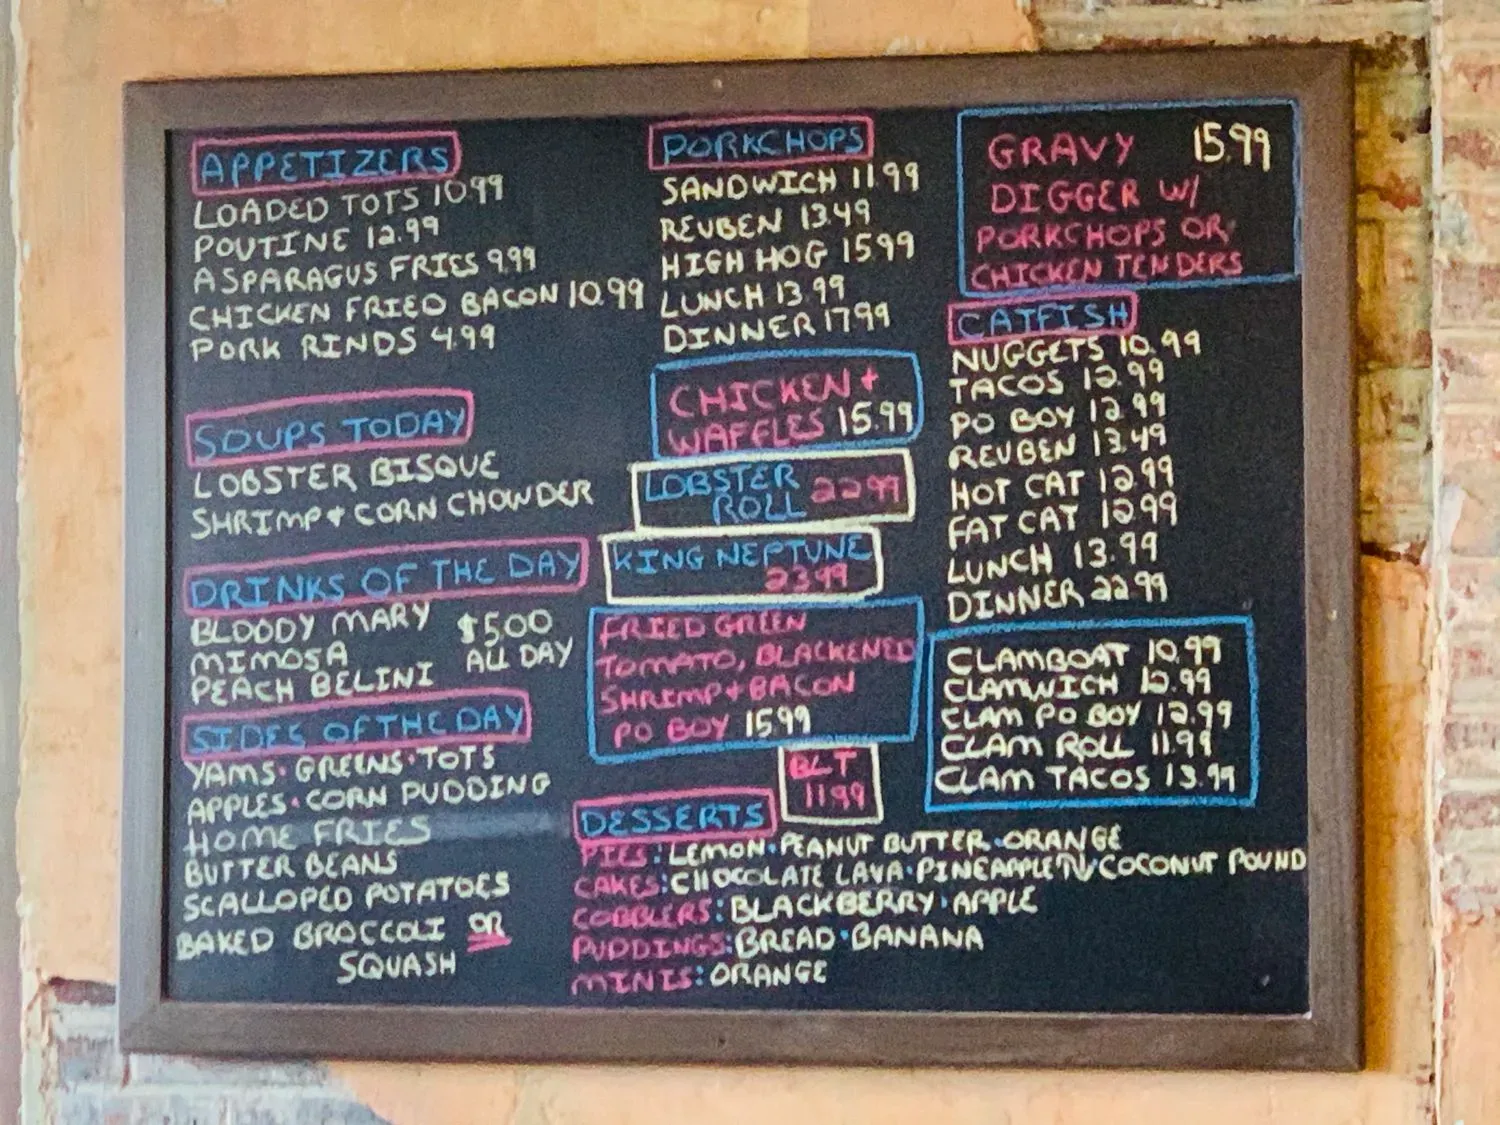 APPETIZERS
LOADED TOTS 10.99
POUTINE 12.99
ASPARAGUS FRIES 9.99
CHICKEN FRIED BACON 10.99
PORK RINDS 4.99
SOUPS TODAY
LOBSTER BISQUE
SHRIMP + CORN CHOWDER
DRINKS OF THE DAY
BLOODY MARY $5.00
MIMOSA ALL DAY
PEACH BELINI
SIDES OF THE DAY
YAMS · GREENS · TOTS
APPLES · CORN PUDDING
HOME FRIES
BUTTER BEANS
SCALLOPED POTATOES
BAKED BROCCOLI OR
SQUASH
PORKCHOPS
SANDWICH 11.99
REUBEN 13.49
HIGH HOG 15.99
LUNCH 13.99
DINNER 17.99
CHICKEN +
WAFFLES 15.99
LOBSTER
ROLL 22.99
KING NEPTUNE
23.99
FRIED GREEN
TOMATO, BLACKENED
SHRIMP + BACON
PO BOY 15.99
BLT
11.99
DESSERTS
PIES: LEMON · PEANUT BUTTER · ORANGE
CAKES: CHOCOLATE LAVA · PINEAPPLE COCONUT POUND
COBBLERS: BLACKBERRY · APPLE
PUDDINGS: BREAD · BANANA
MINIS: ORANGE
GRAVY 15.99
DIGGER W/
PORKCHOPS OR
CHICKEN TENDERS
CATFISH
NUGGETS 10.99
TACOS 12.99
PO BOY 12.99
REUBEN 13.49
HOT CAT 12.99
FAT CAT 12.99
LUNCH 13.99
DINNER 22.99
CLAMBOAT 10.99
CLAMWICH 12.99
CLAM PO BOY 12.99
CLAM ROLL 11.99
CLAM TACOS 13.99